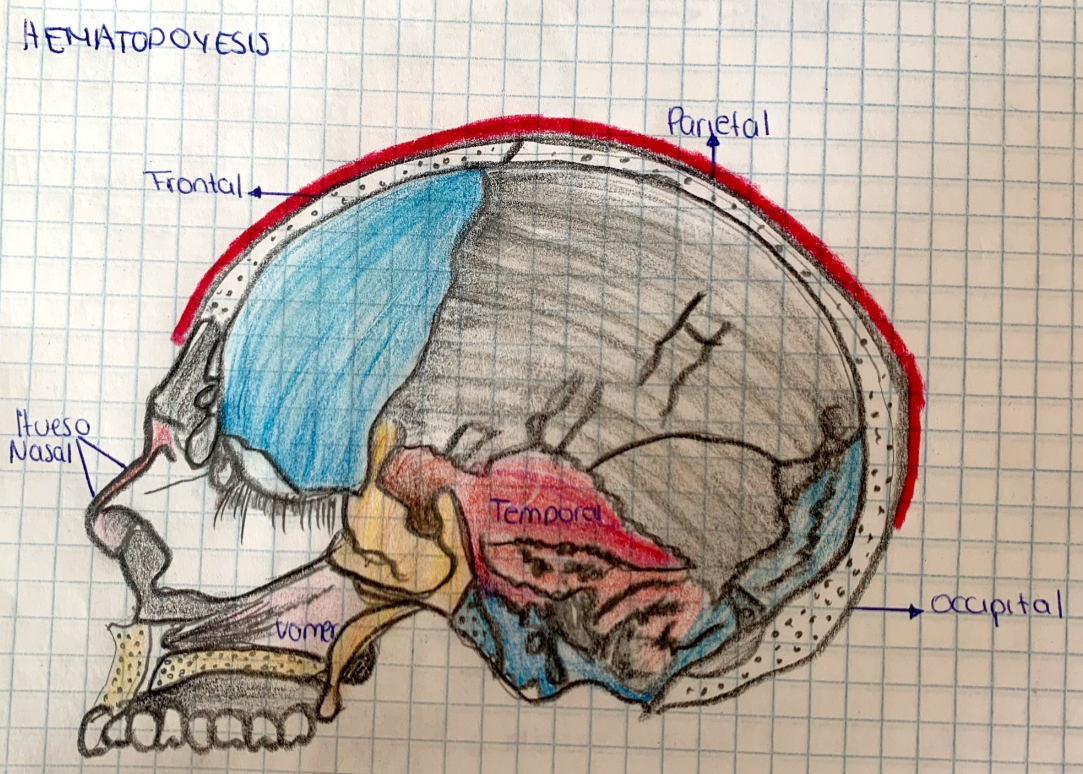 HEMATOPOYESIS
Parietal
Frontal
Hueso
Nasal
Temporal
Vomer
occipital